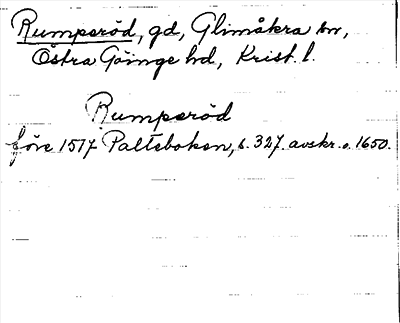 Rumperöd, gd, Glimåkra sn,
Östra Göinge hd, Krist. l.
Rumperöd
före 1517 Palteboken, s. 327. avskr. o. 1650.